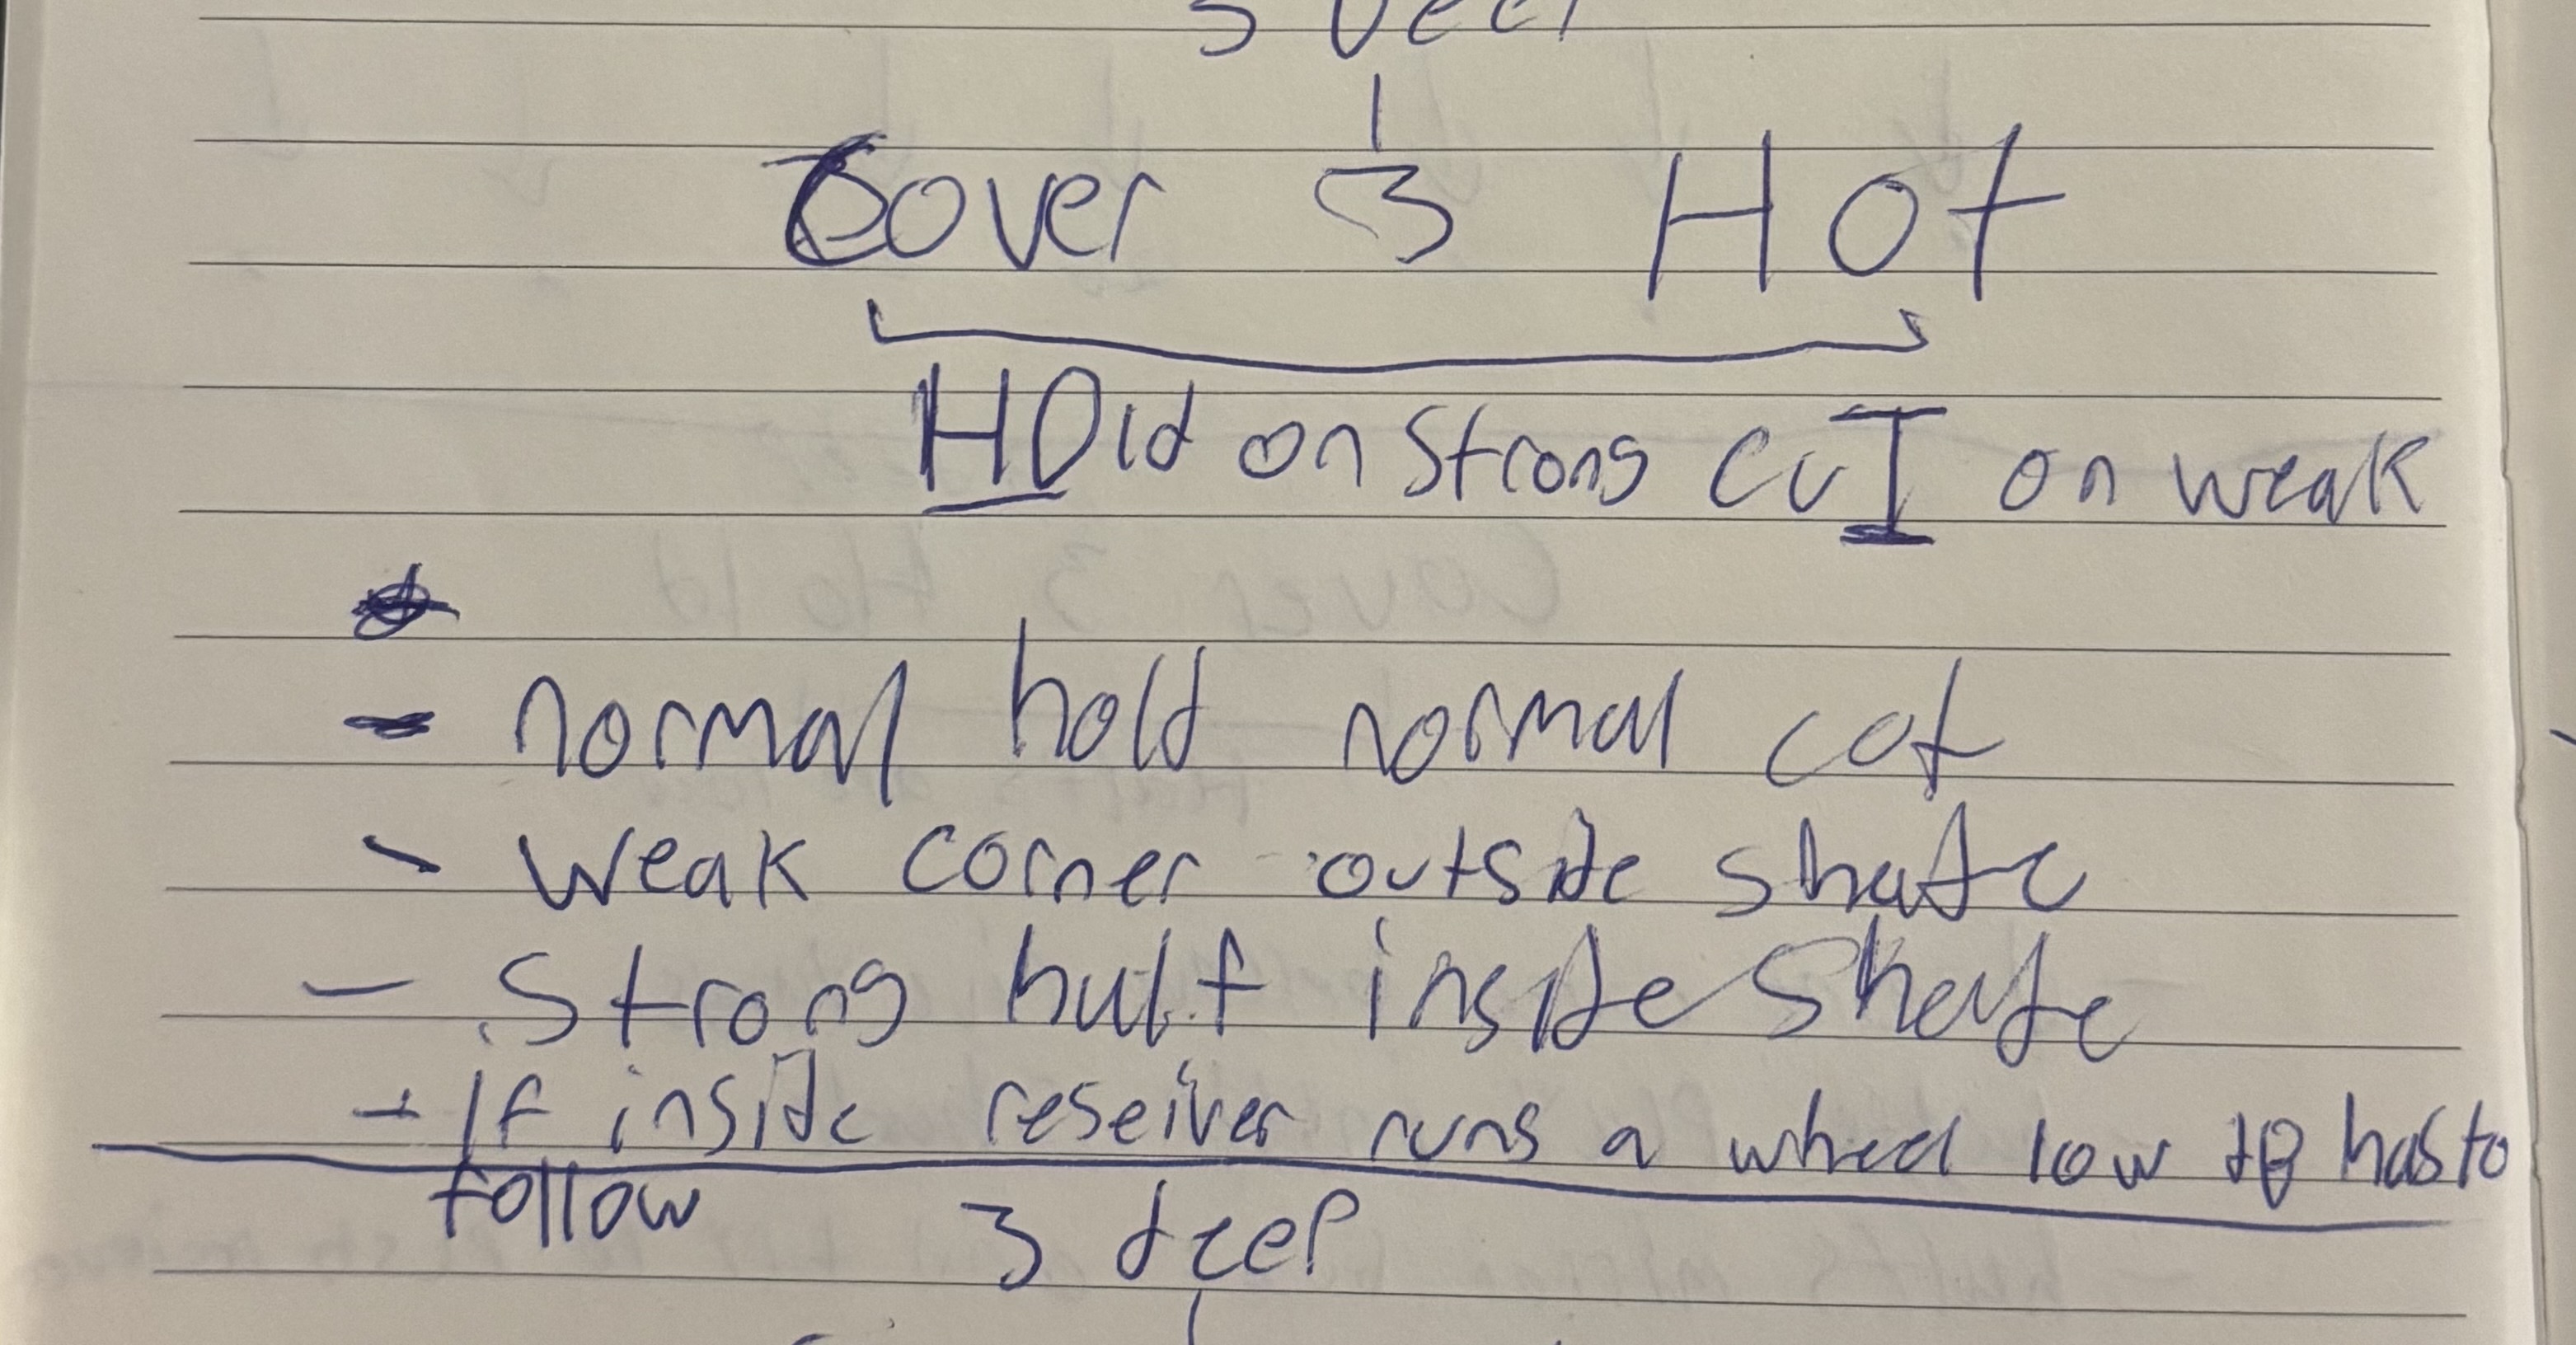 3 Deep
Cover 3 Hot
HOld on Strong CuT on weak
- normal hold normal cut
- weak corner outside shade
- Strong half inside Shade
- If inside reseiver runs a wheel low has to
follow
3 deep